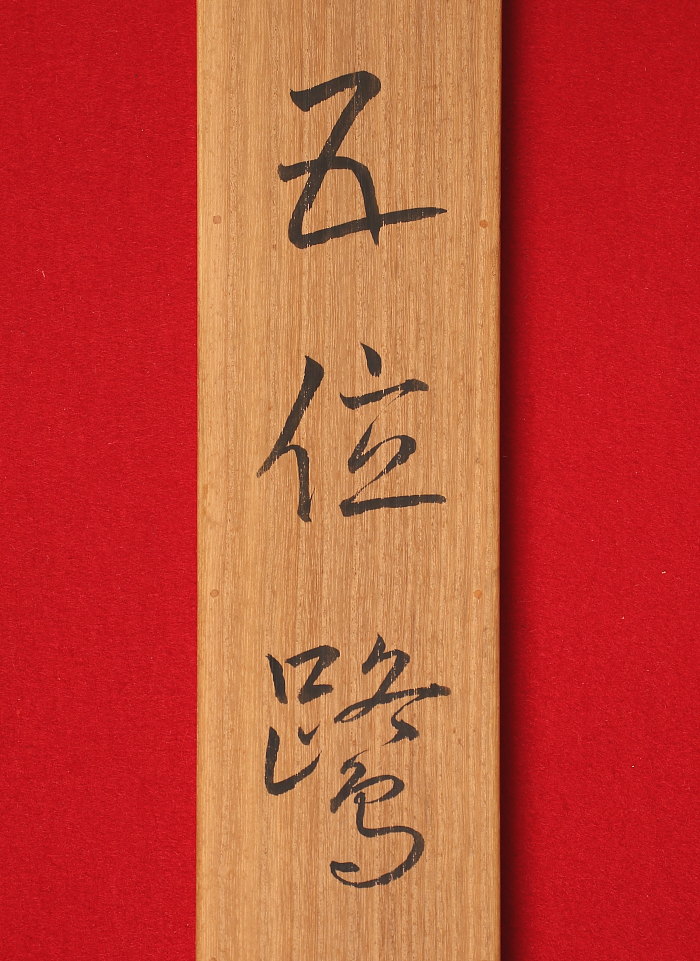 五位鷺